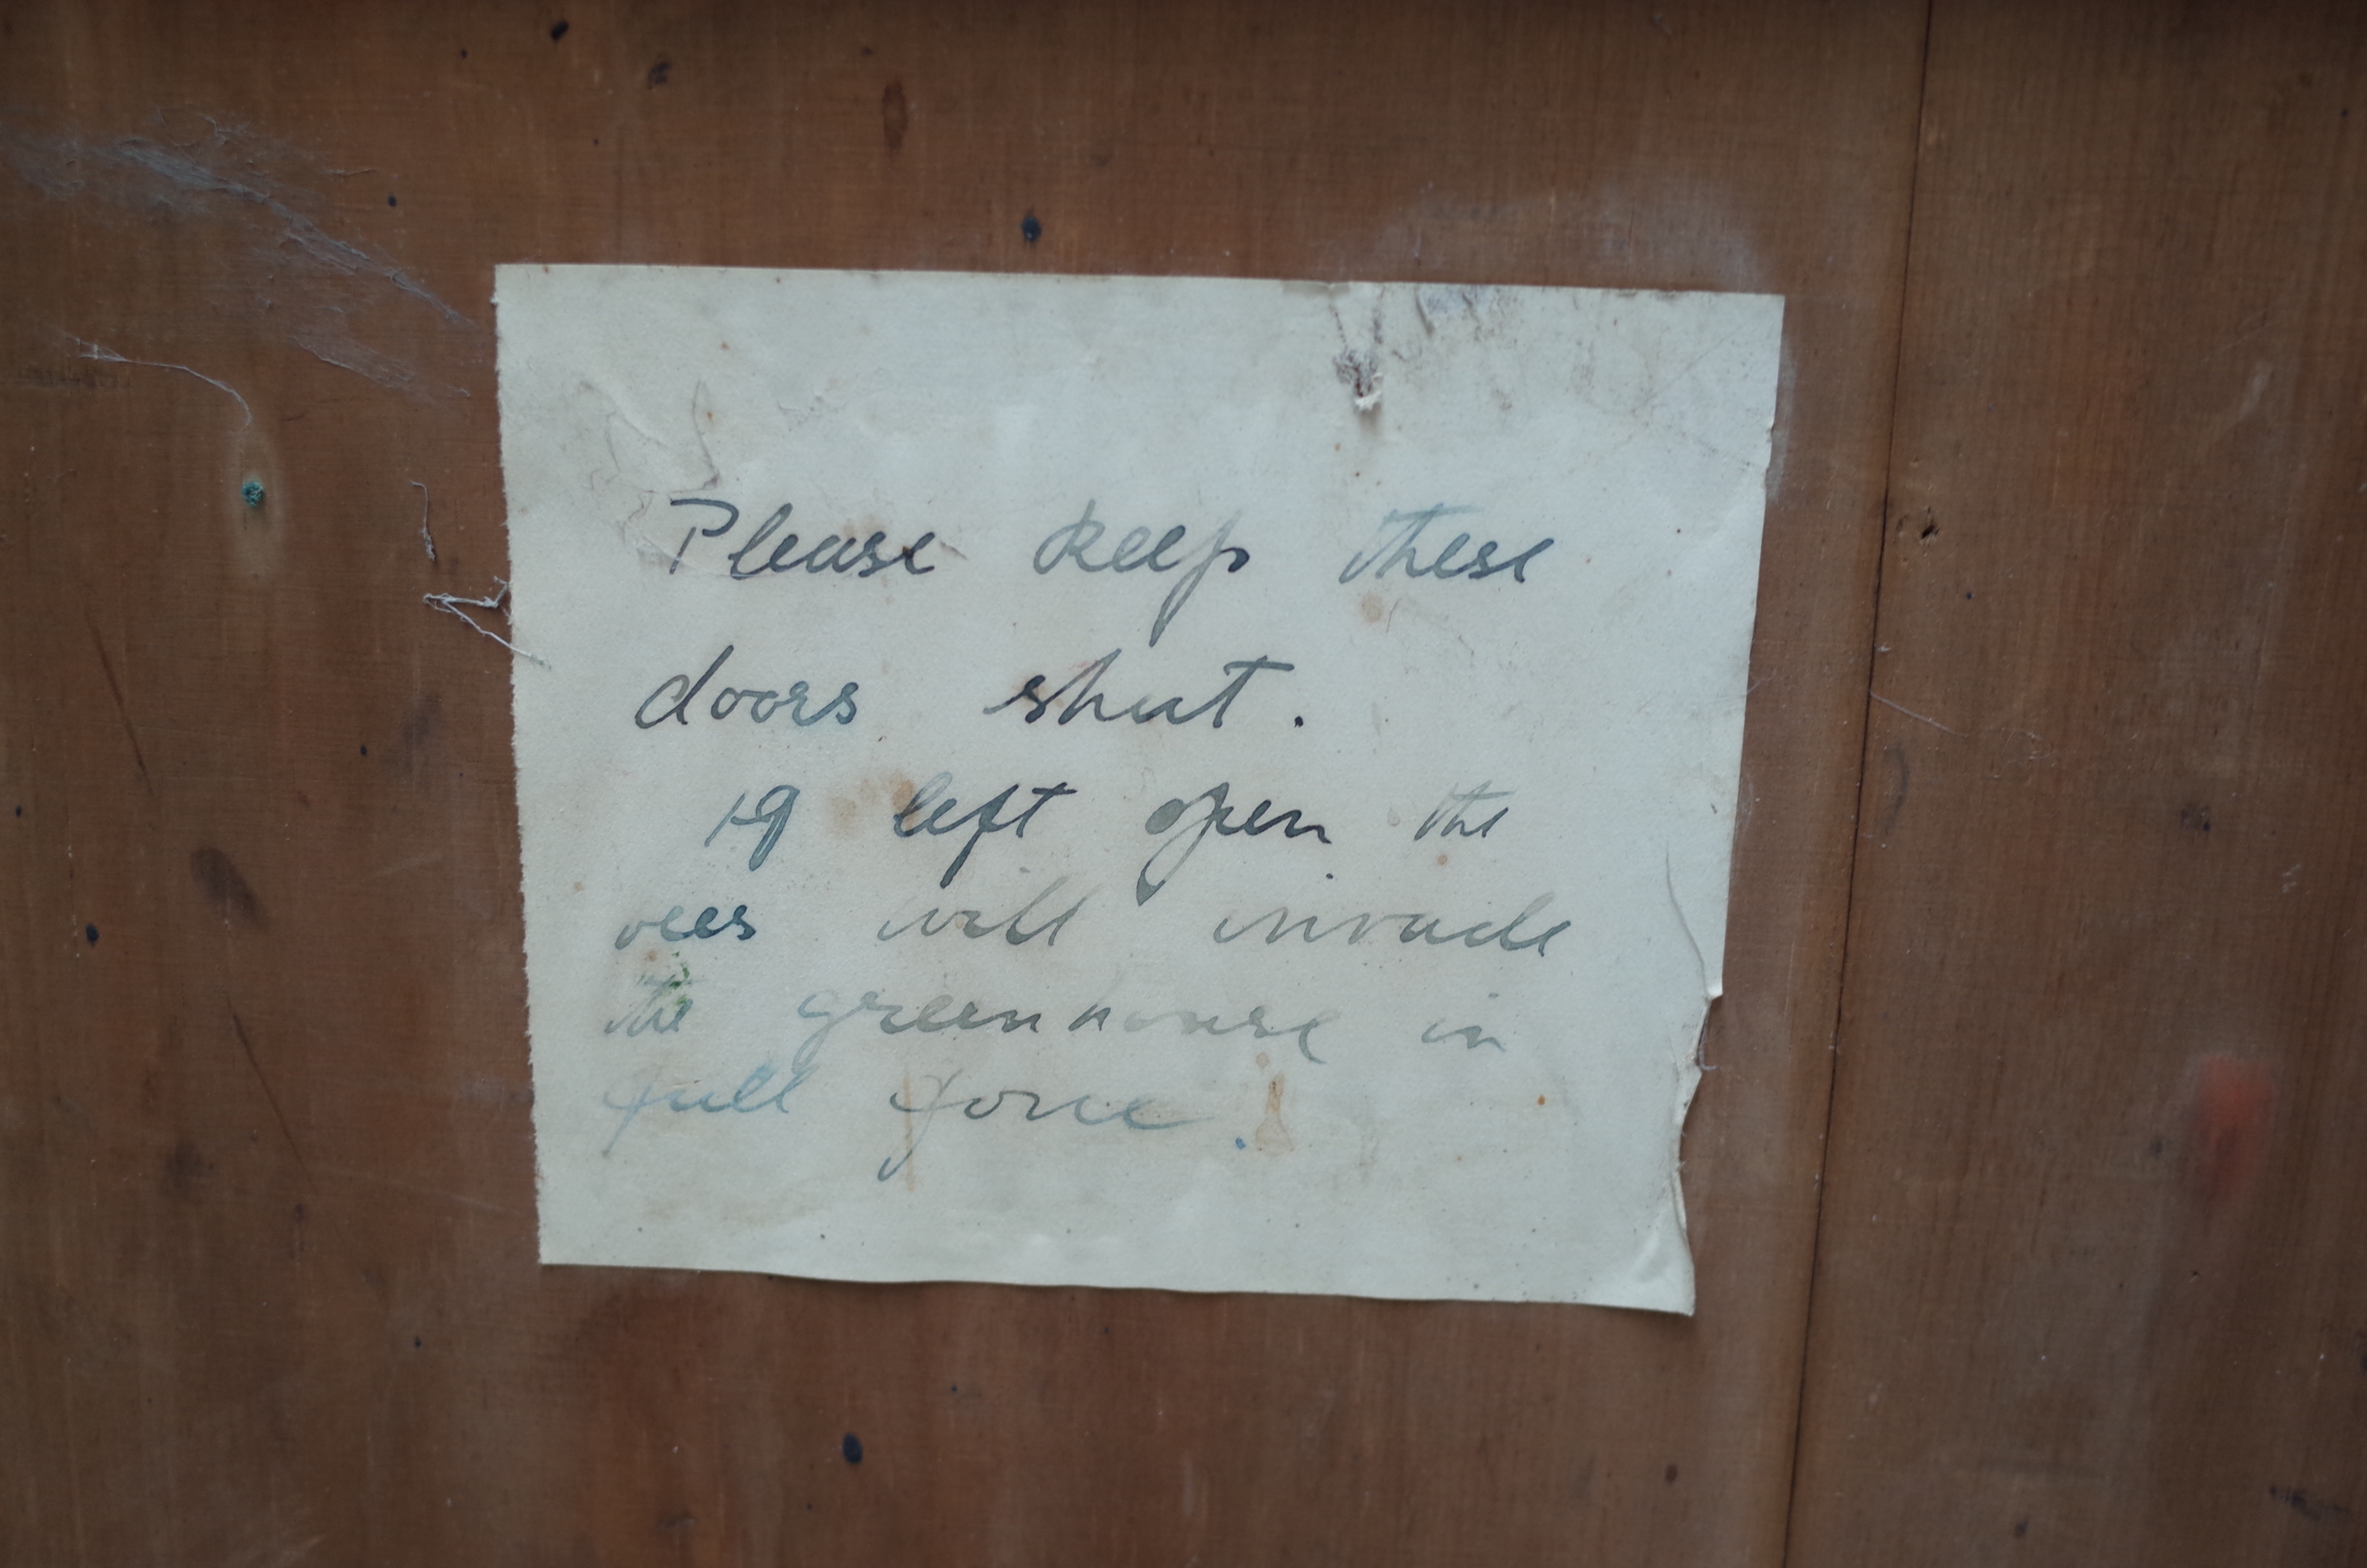 Please keep these
doors shut.
If left open the
will invade
the greenhouse in
full force.